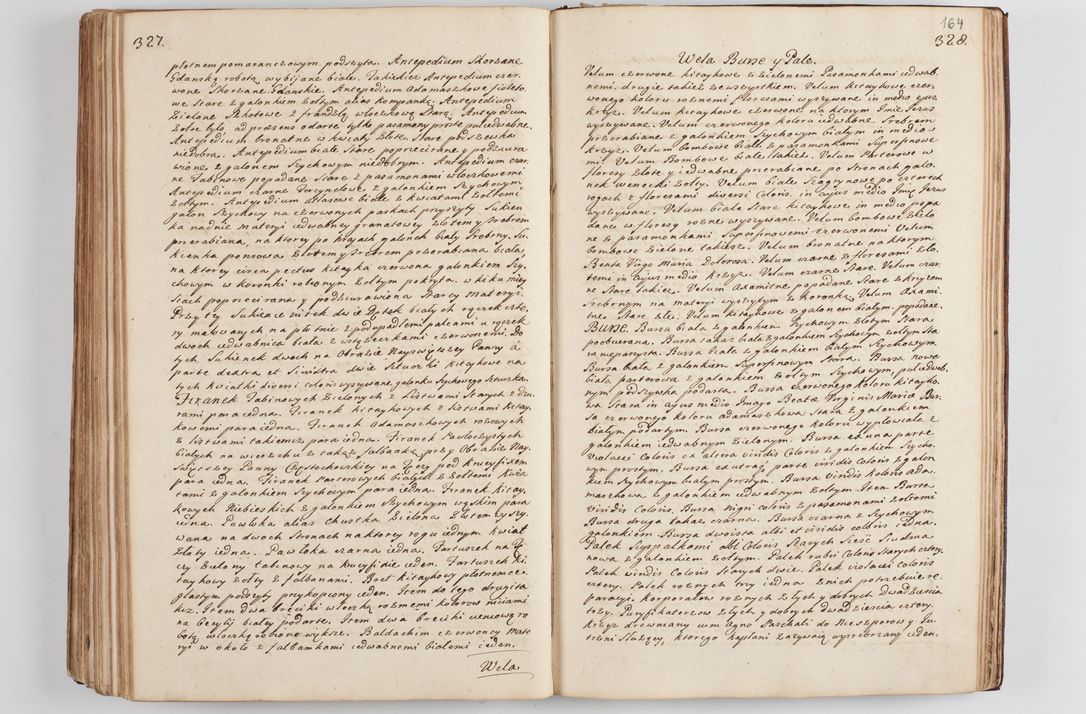 327.
płotnem pomaranczowym podszyta. Antepedium Skorzane
Gdanską robotą wybijane biale. Takiekież Antepedium czer-
wone Skorzane Gdanskie. Antepedium Adamaszkowe fioleto-
we Stare z galonkiem żołtym alias kompanką. Antepedium
Zielone z frandzlą włoczkową Stare. Antepedium
żołte było, ad præsens odarte tylko pasamony proste niciedwabne.
Antepedium bronatne w kwiaty złote, Stare podszewka
niedobra. Antepedium biale Stare poprzecirane y podziura
wione z galonem Szychowym niedobrym. Antepedium czar
ne Tabinowe popadane Stare z pasamonami włoczkowemi
Antepedium czarne z galonkiem Szychowym
żołtym. Antepedium Atłasowe biale z kwiatami żołtemi
galon Szychowy na czerwonych paskach przyszyty. Sukien
ka na dnie materyi iedwabney granatowey złotem y srebrem
przerabiana, na ktorey po krajach galonek biały srebrny. Su
kienka ponsowa złotem y srebrem przerabiana biała,
na ktorey circa pectus kitayka czerwona galonkiem Szy
chowym w koronki robionym żołtym pokryta, w kilku miey
scach poprzecirana y podziurawiona Starey materyi.
Przy tey Sukience nitek dwie Perek białych, rączek czte
ry malowanych na płotnie z podpadłemi palcami u rączek
dwoch iedwabnica biała z wstążeczkami czerwonemi. Do
tych Sukienek dwoch na Obrazie Nayswiętszey Panny à
parte dextra et Sinistra dwie Sztuczki kitaykowe na
tych kwiatki diversi Coloris wyszywane galonku Szychowego Sztuczka.
Firanek Tabinowych Zielonych z Listwami Starych z dziu
rami para iedna. Firanek kitaykowych z listwami kitay
kowemi para iedna. Firanek Adamaszkowych rożowych
z listwami takiemiż para iedna. Firanek Pawłoczystych
białych na wierzchu z takąż falbanką przy Obrazie Nay
święt. szey Panny Częstochowskiey na Tęczy pod krucyfixem
para iedna. Firanek Parterowych białych z żołtemi kwia
tami z galonkiem Szychowym para iedna. Firanek kitay
kowych Niebieskich z galonkiem Szychowym wązkim para
iedna. Pawłoka alias Chustka Zielona złotem wyszy
wana na dwoch Stronach na ktorey rogu iednym kwiat
złoty ieden. Pawłoka czarna iedna. Fartuszek na Tę
czy Zielony tabinowy na krucyfixie ieden. Fartuszek ki
taykowy żołty z falbonami. Boet kitaykowy płotnem ce
glastym podszyty przykopcony ieden. Item do tego drugi ta
kiż. Item dwa Breciki włoczką rożnemi kolorow niciami
na Cegły biały podarte. Item dwa breciki ceniową ro
botą włoczką robione większe. Baldachim czerwoney mate
ryi w około z falbankami iedwabnemi białemi ieden.
Wela
164
328.
Wela Burse y Pale.
Velum czerwone kitaykowe z Zielonemi Pasamonkami iedwab
nemi, drugie takież ze wszystkiem. Velum kitaykowe czer
wonego koloru rożnemi floresami wyszywane in medio ejus
krzyż. Velum kitaykowe czerwone na ktorym Imie Jezus
wyszywane. Velum czerwonego koloru iedwabne Srebrem
przerabiane z galonkiem Szychowym białym in medio
krzyż. Velum bombowe białe z pasamonkami Superfinowe
mi. Velum Bombowe biale takież. Velum Parterowe w
floresy złote y iedwabne przerabiane po Stronach galo
nek wenecki żołty. Velum biale szagrynowe po czterech
rogach z floresami diversi Coloris, in cujus medio Imie Jezus
wyszywane. Velum biale Stare kitaykowe in medio popa
dane w floresy rożne wyszywane. Velum bombowe zielo
ne z pasamonkami Superfinowemi czerwonemi Velum
bombowe zielone takież. Velum bronatne na ktorym
Beata Virgo Maria Dolorosa. Velum czarne z floresami zło
temi in cujus medio krzyż. Velum czarne Stare. Velum czar
ne Stare takież. Velum Axamitne popadane Stare z krzyżem
Srebrnym na materyi wyszytym z koronką. Velum Axami.
tne. Stare złe. Velum kitaykowe z galonem białym popadane.
Burse. Bursa biała z galonkiem Szychowym żołtym Stara
poobierana. Bursa takaż biała z galonkiem Szychowym żołtym sta
ra nieporzysta. Bursa biała z galonkiem białym Szychowym.
Bursa biała z galonkiem Superfinowym Stara. Bursa nowa
biała parterowa z galonkiem żołtym Szychowym, puł iedwab
nym podszewka podarta. Bursa czerwonego koloru kitayko
wa Stara in cujus medio Imago Beatæ Virginis Mariæ. Bur
sa czerwonego koloru adamaszkowa Stara z galonkiem
Białym, podartym. Bursa czerwonego koloru wypłowiała z
galonkiem iedwabnym Zielonym. Bursa ex una parte
violacei Coloris ex altera viridis Coloris z galonkiem Szycho
wym prostym. Bursa ex utraq parte viridis Coloris z galon
kiem Szychowym białym prostym. Bursa viridis koloris ada
maszkowa z galonkiem iedwabnym żołtym. Item Bursa
viridis Coloris. Bursa nigri coloris z pasamonami żołtemi
Bursa druga takaż czarna. Bursa czarna z Szychowym
galonkiem. Bursa dwoista albi et viridis coloris iedna.
Palek albi Coloris Starych Sześć Siudma
nowa z galonkiem żołtym. Palek rubri Coloris Starych cztery.
Palek viridis Coloris Starych dwie. Palek violacei coloris
cztery. Palek rożnych trzy iedna z nich potrzebuie re
paracyi. korporałow rożnych złych y dobrych Dwadzieścia
trzy. Puryfikaterzow złych y dobrych dwadzieścia cztery.
krzyż drewniany cum Agno Paschali do Nieszporow y Ju
trzni służący, ktorego kapłani zażywaią wyzrebrzany ieden.